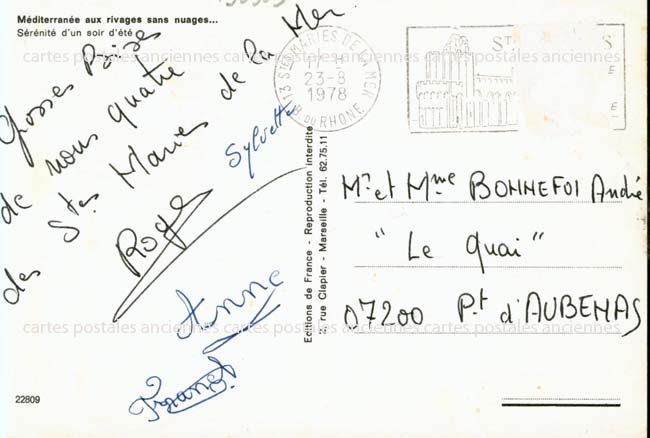 Méditerranée aux rivages sans nuages...
Sérénité d'un soir d'été
Grosses Bises
de nous quatre
des Stes Maries de la Mer
Sylvette
Roger
Anne
Franck
22809
Editions de France - Reproduction Interdite
rue Clapier - Marseille - Tél. 62.75.11
13 STES MARIES DE LA MER
23-8
1978
B. DU RHONE
ST
S
E
E
Mr et Mme BONNEFOI André
"Le Quai"
07200 Pt d'AUBENAS
cartes postales anciennes cartes postales anciennes
cartes postales anciennes cartes postales anciennes